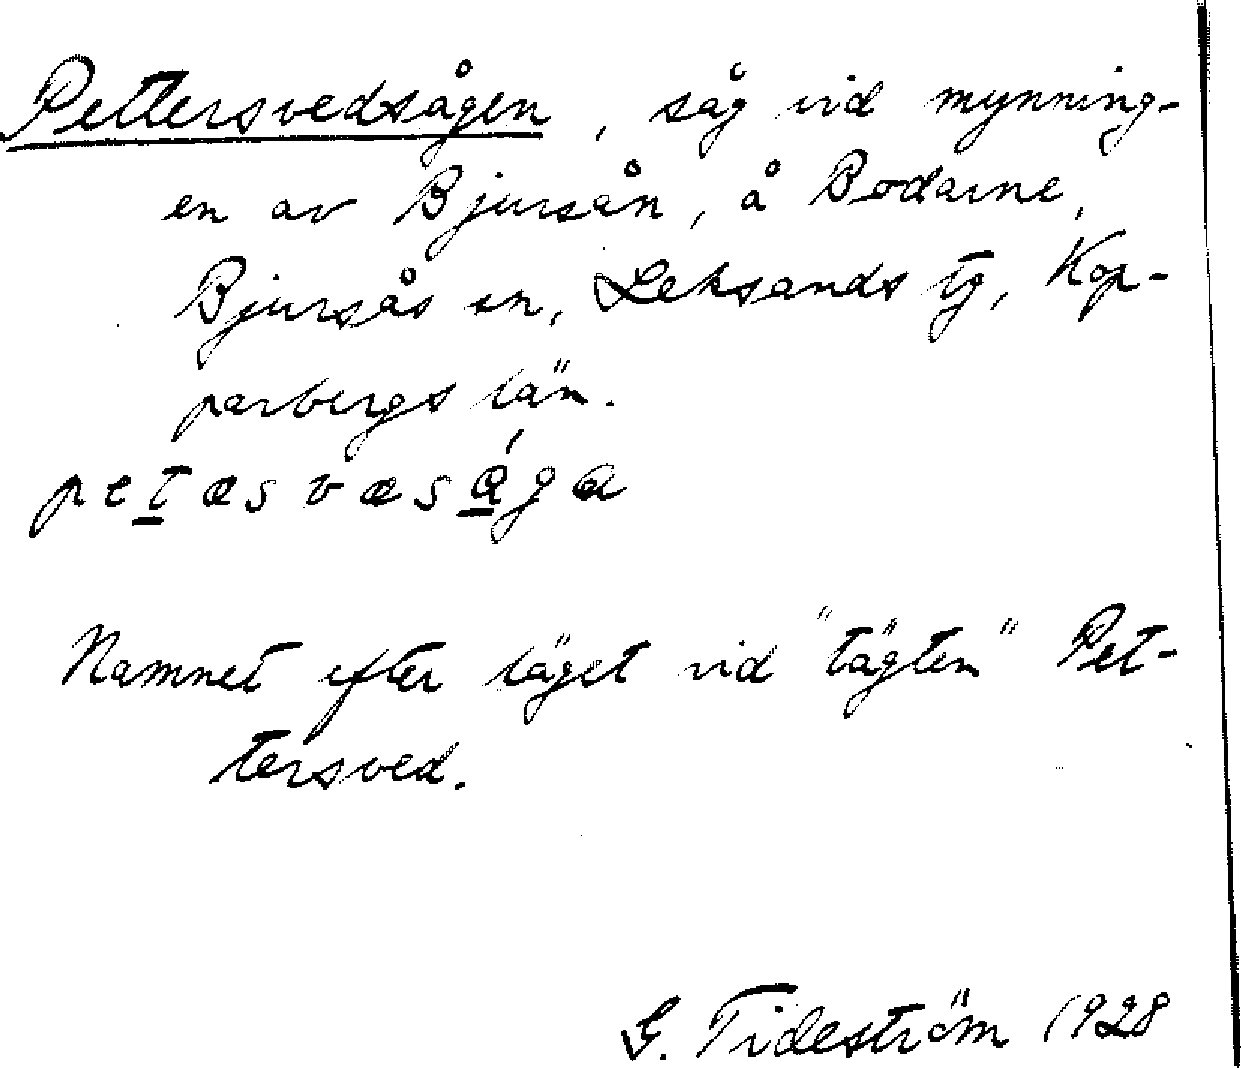 Pettersvedsågen, såg vid mynning-
en av Bjursån, å Bodarne,
Bjursås sn, Leksands tg, Kop-
parbergs län.
petæsvæsága
Namnet efter läget vid "tägten" Pet-
tersved.
G. Tideström 1928